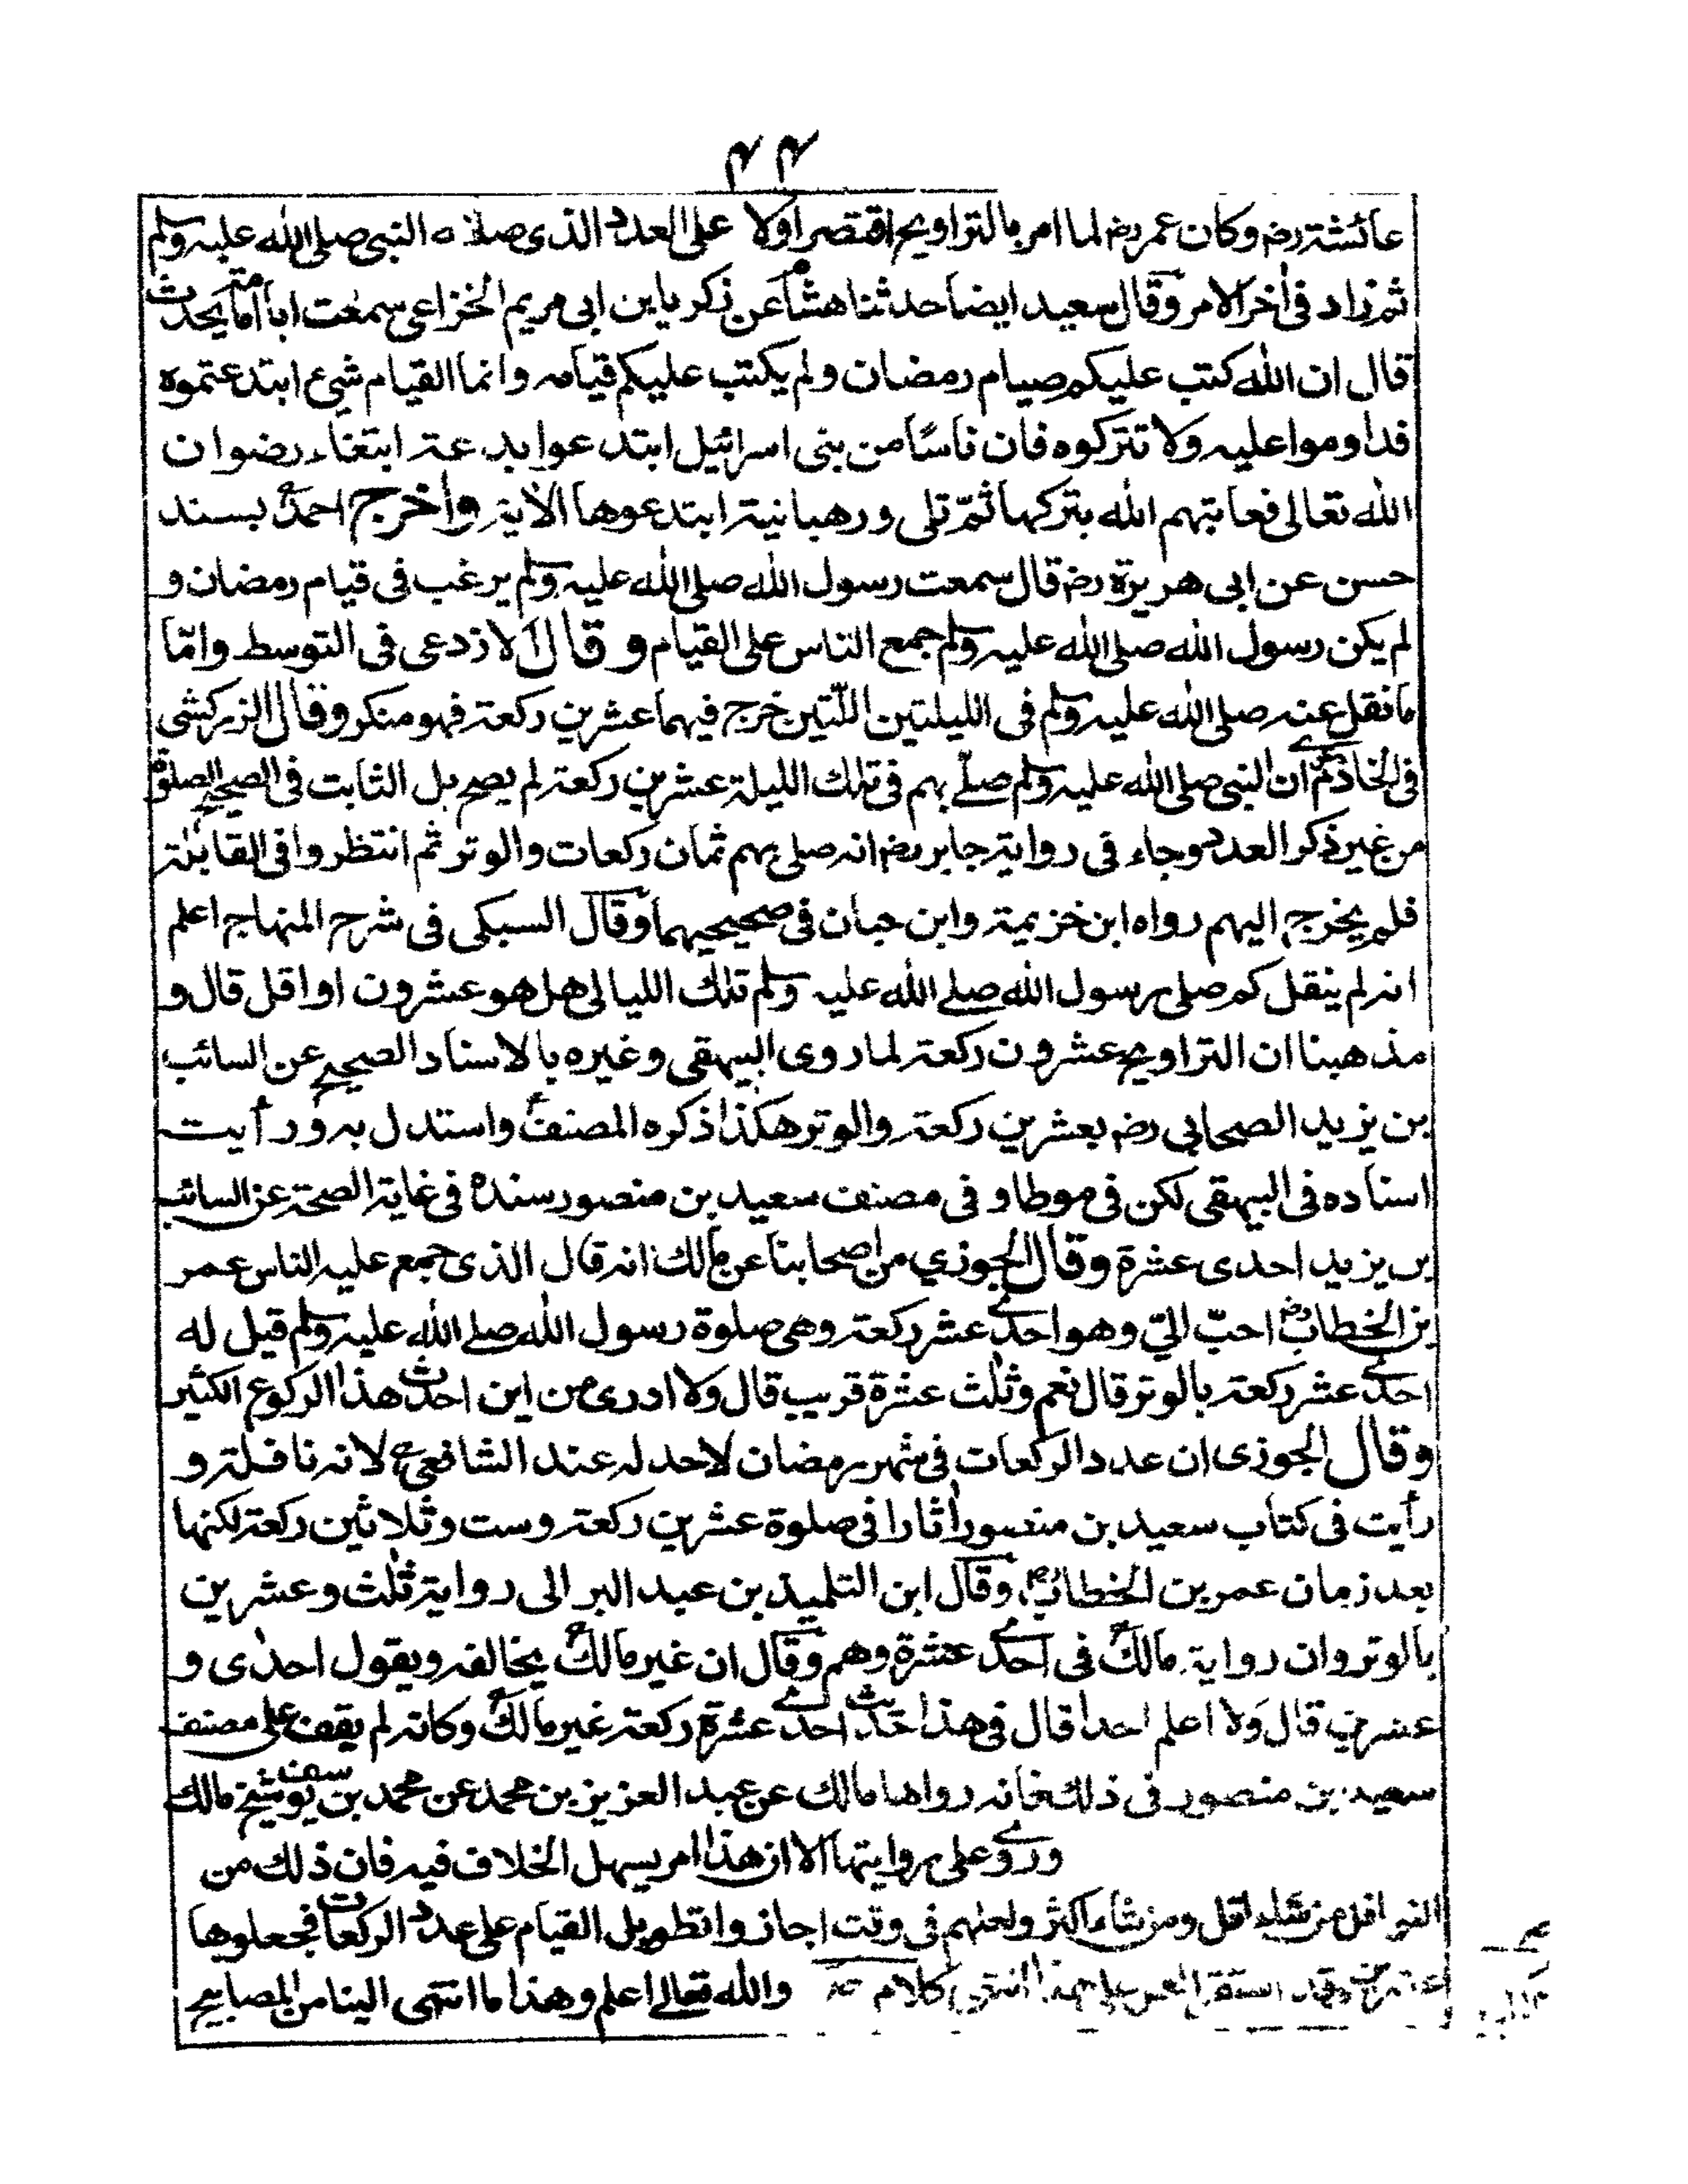 ۴۴
عائشة رضہ وكان عمر رضہ لما امر بالتراويح اقتصر اولا على العدد الذى صلاه النبى صلى الله عليہ وسلم
ثم زاد فى اٰخر الامر وقال سعيد ايضا حدثنا هشام عن زكريا بن ابى مريم الخزاعى سمعت ابا امامة يحدث
قال ان الله كتب عليكم صيام رمضان ولم يكتب عليكم قيامه وانما القيام شئ ابتدعتموه
فداوموا عليه ولا تتركوه فان ناسًا من بنى اسرائيل ابتدعوا بدعة ابتغاء رضوان
الله تعالى فعاتبهم الله بتركها ثمّ تلى ورهبانية ابتدعوها الاٰية واخرج احمدؒ بسند
حسن عن ابى هريرة رضہ قال سمعت رسول الله صلى الله عليه وسلم يرغب فى قيام رمضان و
لم يكن رسول الله صلى الله عليه وسلم جمع الناس على القيام وقال الازدعى فى التوسط وامّا
ما نقل عنه صلى الله عليه وسلم فى الليلتين اللّتين خرج فيهما عشرين ركعة فهو منكر وقال الزركشى
فى الخادم ان النبى صلى الله عليه وسلم صلّے بهم فى تلك الليلة عشرين ركعة لم يصح بل الثابت فى الصحيح الصلوة
من غير ذكر العدد وجاء فى رواية جابر رضہ انه صلى بهم ثمان ركعات والوتر ثم انتظروا فى القابلة
فلم يخرج اليهم رواه ابن خزيمة وابن حبان فى صحيحيهما وقال السبكى فى شرح المنهاج اعلم
انه لم ينقل كم صلى رسول الله صلے الله عليه وسلم تلك الليالى هل هو عشرون او اقل قال و
مذهبنا ان التراويح عشرون ركعة لما روى البيهقى وغيره بالاسناد الصحيح عن السائب
بن يزيد الصحابى رضہ بعشرين ركعة والوتر هكذا ذكره المصنفؒ واستدل به ورأيت
اسناده فى البيهقى لكن فى موطا وفى مصنف سعيد بن منصور سنده فى غاية الصحة عن السائب
بن يزيد احدى عشرة وقال الجوزي من اصحابنا عن مالك انه قال الذى جمع عليه الناس عمر
بن الخطابؓ احبّ الىّ وهو احدے عشر ركعة وهى صلوة رسول الله صلے الله عليه وسلم قيل له
احدے عشر ركعة بالوتر قال نعم وثلٰث عشرة قريب قال ولا ادرى من اين احدث هذا الركوع الكثير
وقال الجوزى ان عدد الركعات فى شهر رمضان لاحد له عند الشافعىؒ لانه نافلة و
رأيت فى كتاب سعيد بن منصور اٰثارا فى صلوة عشرين ركعة وست وثلاثين ركعة لكنها
بعد زمان عمر بن الخطابؓ وقال ابن التلميذ بن عبد البر الى رواية ثلٰث وعشرين
بالوتر وان رواية مالكؒ فى احدے عشرة وهم وقال ان غير مالكؒ يخالفه ويقول احدٰى و
عشرين قال ولا اعلم احدا قال فى هذا احدث احدے عشرة ركعة غير مالكؒ وكانه لم يقف على مصنف
سعيد بن منصور فى ذلك فانه رواها مالك عن عبد العزيز بن محمد عن محمد بن يوسف شيخ مالك
وروے على روايتها الا ان هذا امر يسهل الخلاف فيه فان ذلك من
النوافل من شاء اقل ومن شاء اكثر ولعلهم فى وقت اجازوا تطويل القيام على عدد الركعات فجعلوها
عشرين وقد استقر العمل على هذا انتهى كلامه والله تعالے اعلم وهذا ما انتهى الينا من المصابيح